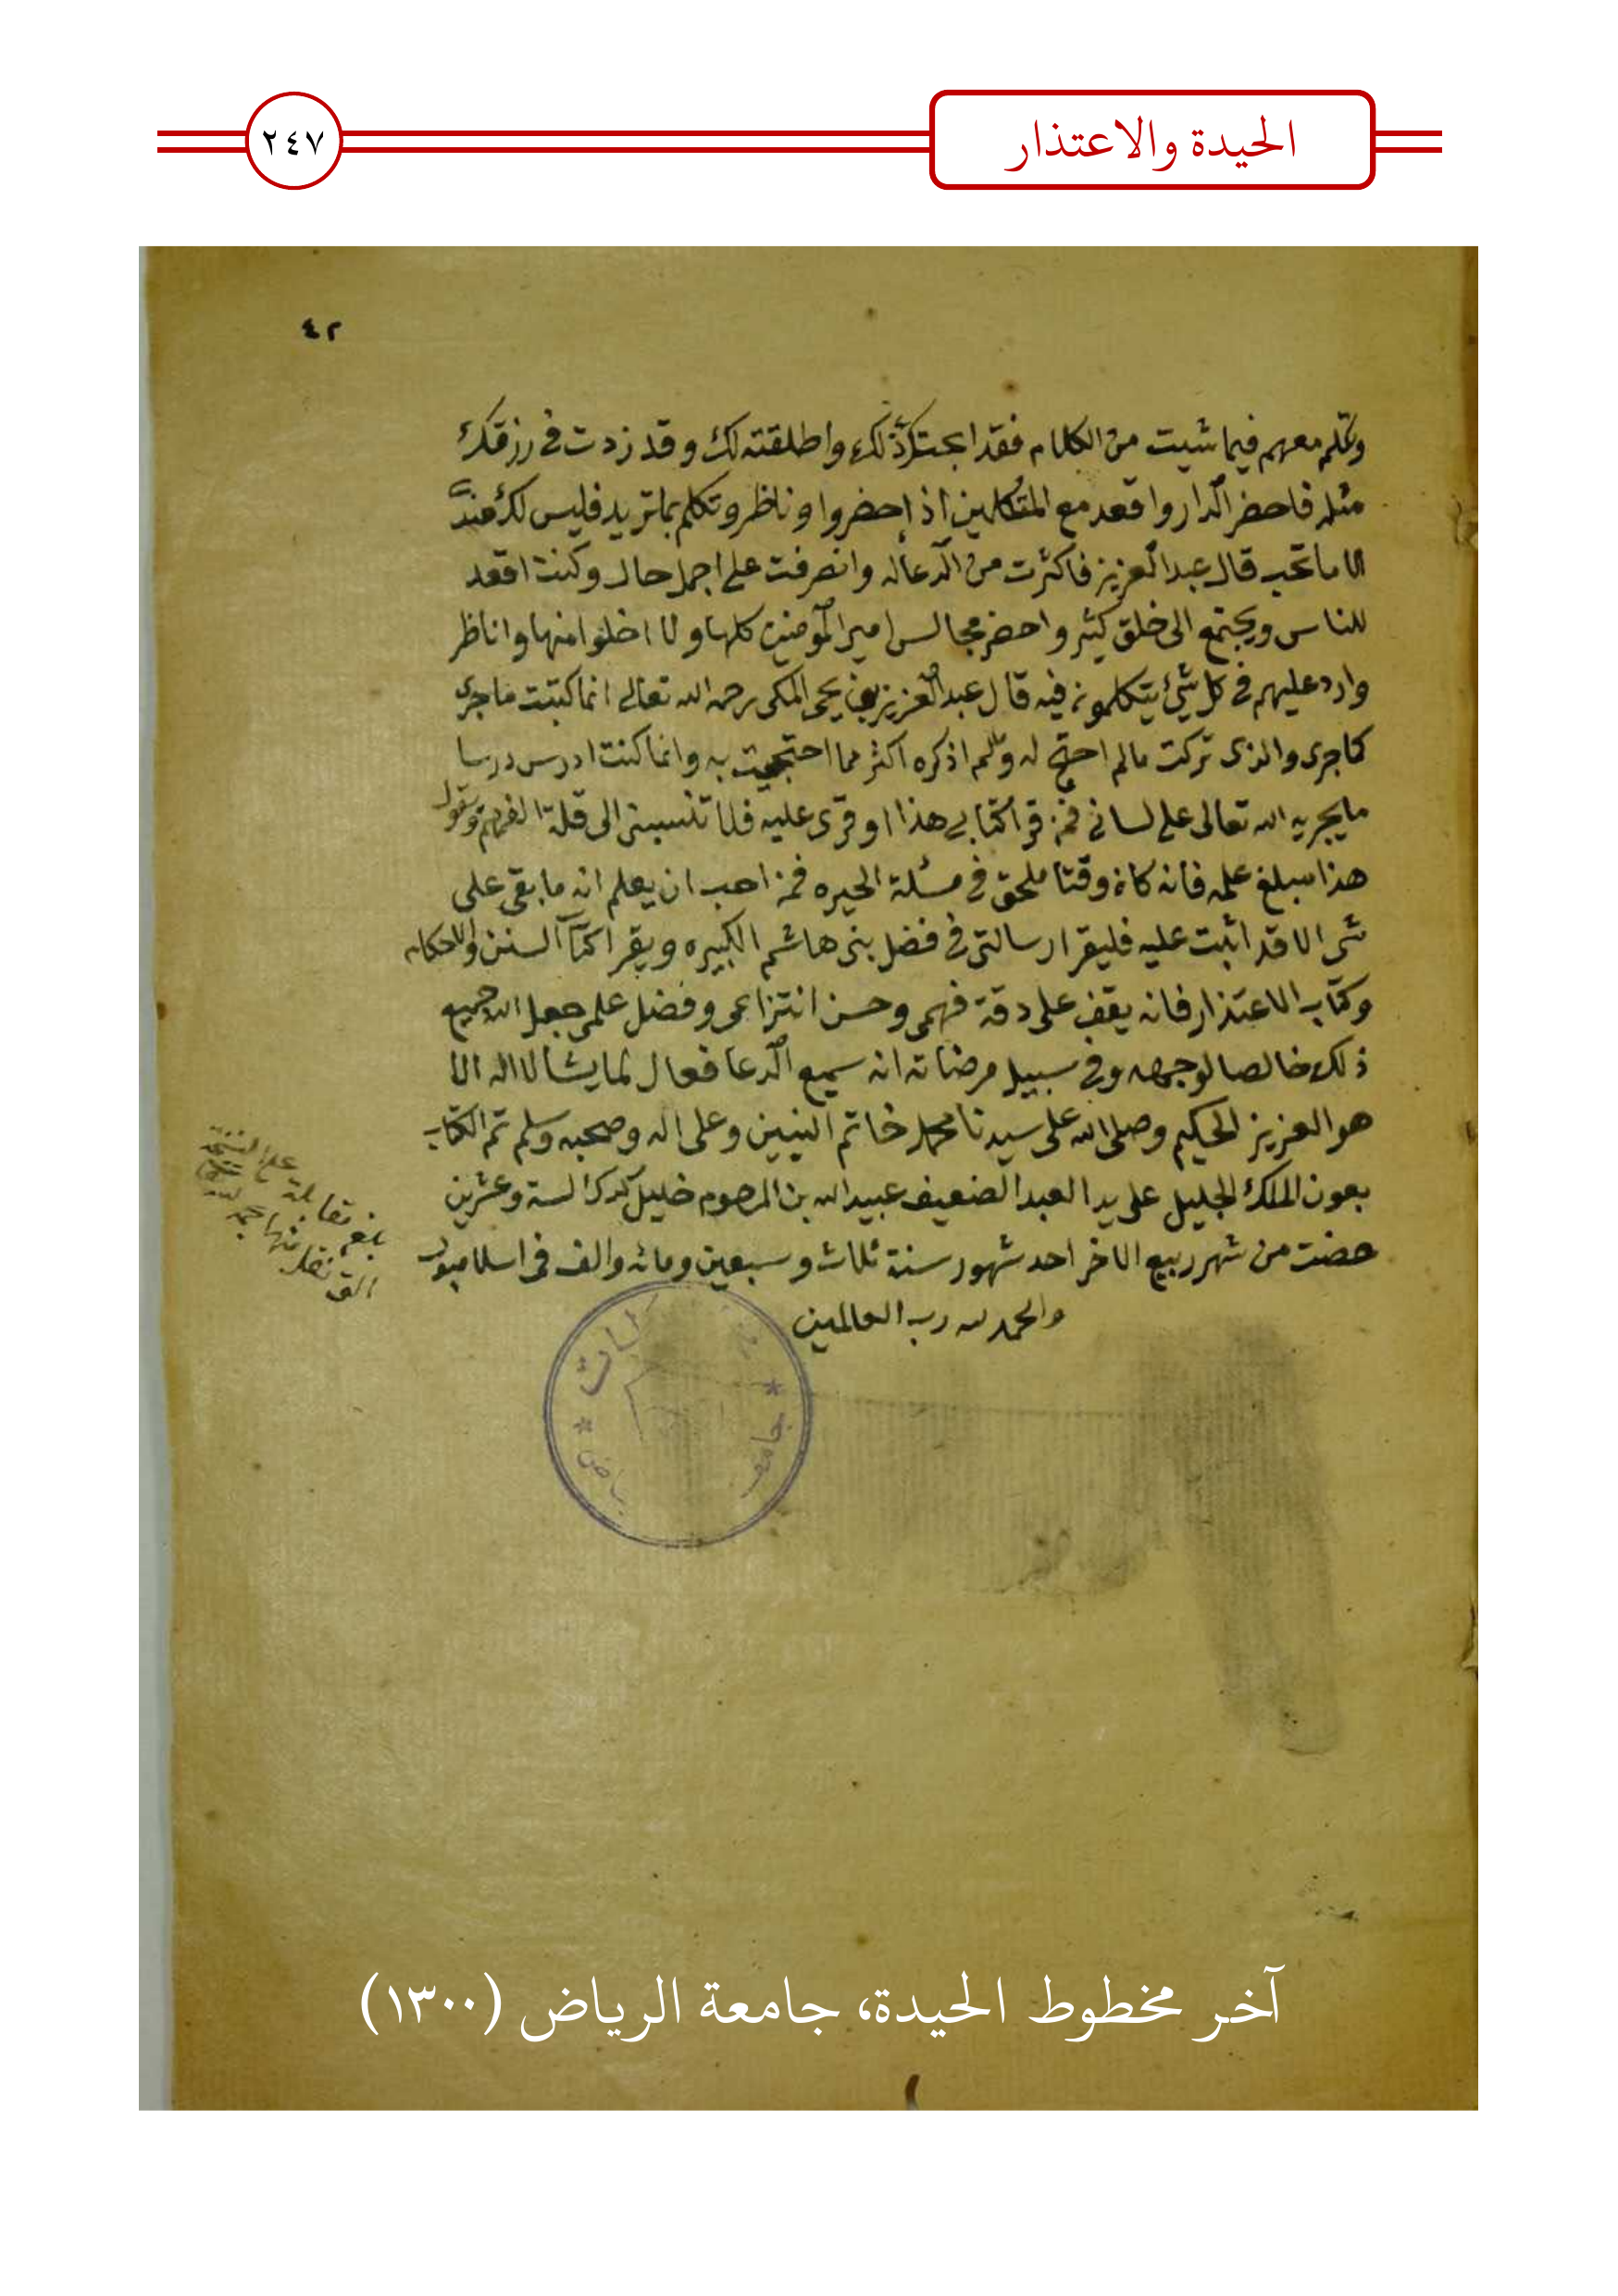 الحيدة والاعتذار
٢٤٧
٤٢
وتكلم معهم فيما شيت من الكلام فقد ابحتك ذلك واطلقته لك وقد زدت في رزقك
مثله فاحضر الدار واقعد مع المتكلمين اذا حضروا وناظر وتكلم بما تريد فليس لك عندنا
الا ما تحب قال عبد العزيز فاكثرت من الدعا له وانصرفت على اجمل حال وكنت اقعد
للناس ويجتمع الى خلق كثير واحضر مجالس امير المومنين كلها ولا اخلوا منها واناظر
وارد عليهم في كل شيئ يتكلمون فيه قال عبد العزيز بن يحيى المكى رحمه الله تعالى انما كتبت ما جرى
كما جرى والذى تركت مالم احتج له ولم اذكره اكثر مما احتججت به وانما كنت ادرس درسا
ما يجريه الله تعالى على لسانى فمن قرا كتابى هذا او قرى عليه فلا تنسبنى الى قلة الفهم ويقول
هذا مبلغ علمه فانه كان وقتا ملحق في مسئلة الحيره فمن احب ان يعلم انه ما بقى على
شى الا قد اتيت عليه فليقرا رسالتى في فضل بنى هاشم الكبيره ويقرا كتاب السنن والاحكام
وكتاب الاعتذار فانه يقف على دقة فهمى وحسن انتزاعى وفضل علمى جعل الله جميع
ذلك خالصا لوجهه وفي سبيل مرضاته انه سميع الدعا فعال لما يشا لا اله الا
هو العزيز الحكيم وصلى الله على سيدنا محمد خاتم النبيين وعلى اله وصحبه وسلم تم الكتاب
بعون الملك الجليل على يد العبد الضعيف عبيد الله بن المرحوم خليل لستة وعشرين
مضت من شهر ربيع الاخر احد شهور سنة ثلاث وسبعين ومائه والف في اسلامبول
والحمد لله رب العالمين
بلغ مقابلة على النسخة
التى نقل منها
جامعة
آخر مخطوط الحيدة، جامعة الرياض (١٣٠٠)